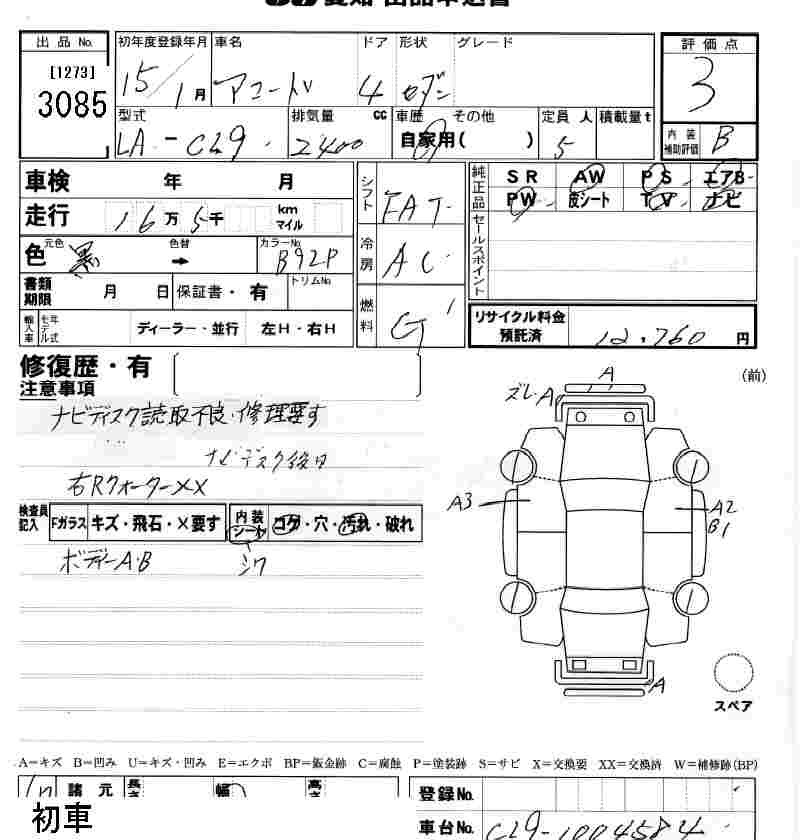 出品No. 初年度登録年月 車名 ドア 形状 グレード 評価点
[1273] 3085 15/1月 アコード 4 セダン 3
型式 排気量 cc 車歴 その他 定員 人 積載量t 内装補助評価 B
LA-CL9 2400 自家用( ) 5
車検 年 月 シフト FAT 純正品 SR AW PS エアB
走行 16万5千 km マイル PW 皮シート TV ナビ
色 元色 黒 色替 → カラーNo. B92P 冷房 AC セールスポイント
書類期限 月 日 保証書・有 トリムNo.
輸入車 モデル年式 ディーラー・並行 左H・右H 燃料 G リサイクル料金預託済 12,760 円
修復歴・有
注意事項
ナビディスク読取不良・修理要す
ナビディスク後日
右RクォーターXX
検査員記入 Fガラス キズ・飛石・X要す 内装 シート コゲ・穴・汚れ・破れ
ボディーA・B シワ
(前)
A
ズレA
A3 A2
B1
A
スペア
A=キズ B=凹み U=キズ・凹み E=エクボ BP=鈑金跡 C=腐蝕 P=塗装跡 S=サビ X=交換要 XX=交換済 W=補修跡(BP)
諸元 長さ 幅 高さ 登録No.
初車 車台No. CL9-1004584